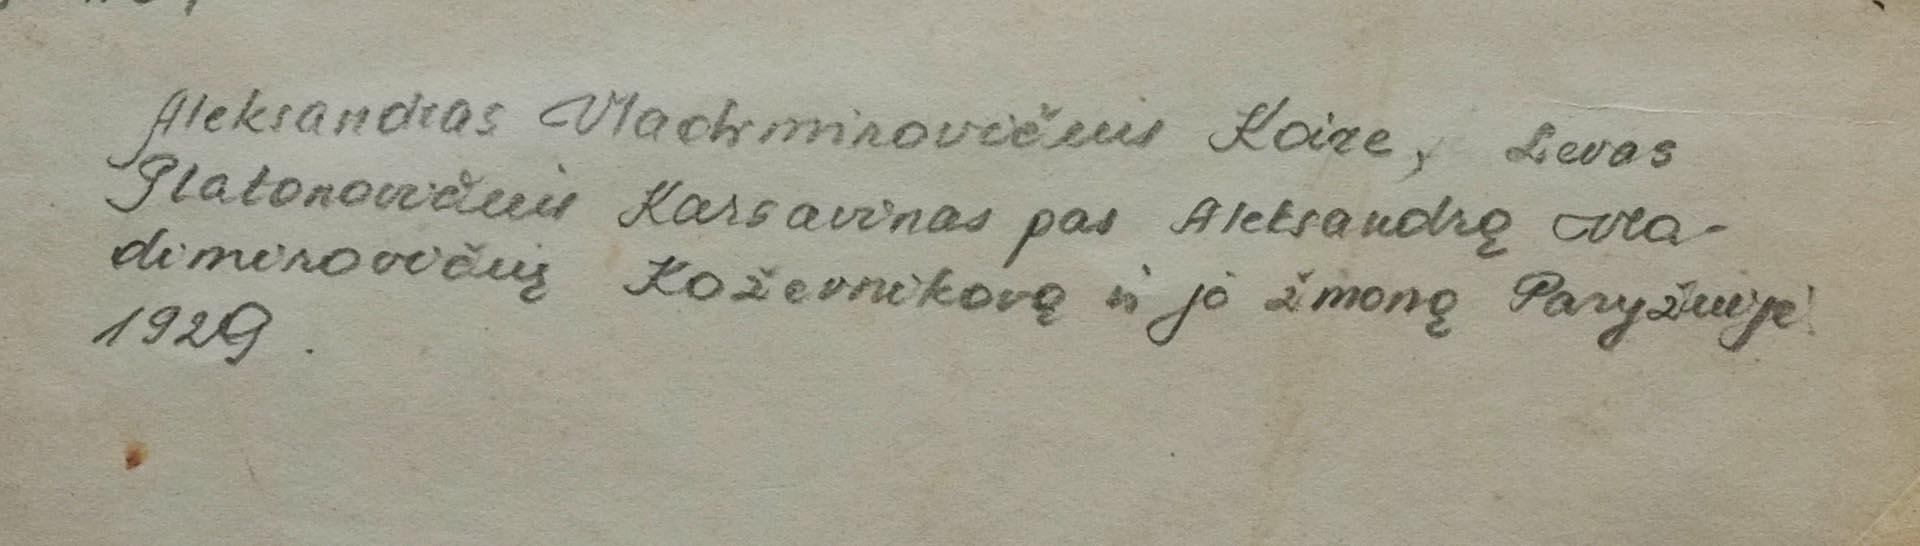 Aleksandras Vladimirovičius Koire, Levas
Platonovičius Karsavinas pas Aleksandrą Vla-
dimirovičių Koževnikovą ir jo žmoną Paryžiuje
1929.